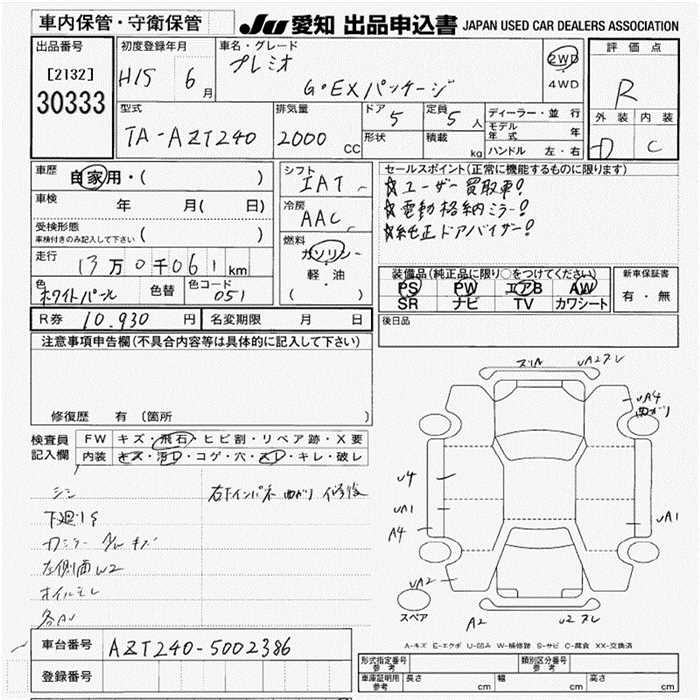 車内保管・守衛保管
JU 愛知 出品申込書 JAPAN USED CAR DEALERS ASSOCIATION
出品番号
[2132]
30333
初度登録年月
H15 6月
車名・グレード
プレミオ
G・EXパッケージ
2WD
・
4WD
評価点
R
外装 内装
D C
型式
TA-AZT240
排気量
2000 CC
ドア
5
定員
5人
形状
積載
kg
ディーラー・並行
モデル年式 年
ハンドル 左・右
車歴
自家用・( )
車検
年 月( 日)
受検形態
車検付きのみ記入して下さい ( )
走行
13万0千061km
色
ホワイトパール
色替
色コード
051
シフト
IAT
冷房
AAC
燃料
ガソリン
軽・油
( )
セールスポイント(正常に機能するものに限ります)
☆ユーザー買取車!
☆電動格納ミラー!
☆純正ドアバイザー!
装備品(純正品に限り○をつけてください)
PS PW エアB AW
SR ナビ TV カワシート
新車保証書
有・無
R券 10.930 円
名変期限 月 日
後日品
注意事項申告欄(不具合内容等は具体的に記入して下さい)
修復歴 有(箇所 )
検査員
記入欄
FW キズ・飛石・ヒビ割・リペア跡・X要
内装 キズ・汚レ・コゲ・穴・スレ・キレ・破レ
右下インパネ 曲がり 修復
下廻りS
左側面W2
オイルモレ
UA2
UA4
曲がり
U4
UA1
A4
UA1
UA2
スペア
A2
U2
A-キズ E-エクボ U-凹み W-補修跡 S-サビ C-腐食 XX-交換済
車台番号 AZT240-5002386
登録番号
形式指定番号
参考
類別区分番号
参考
車庫証明用
参考
長さ cm 幅 cm 高さ cm